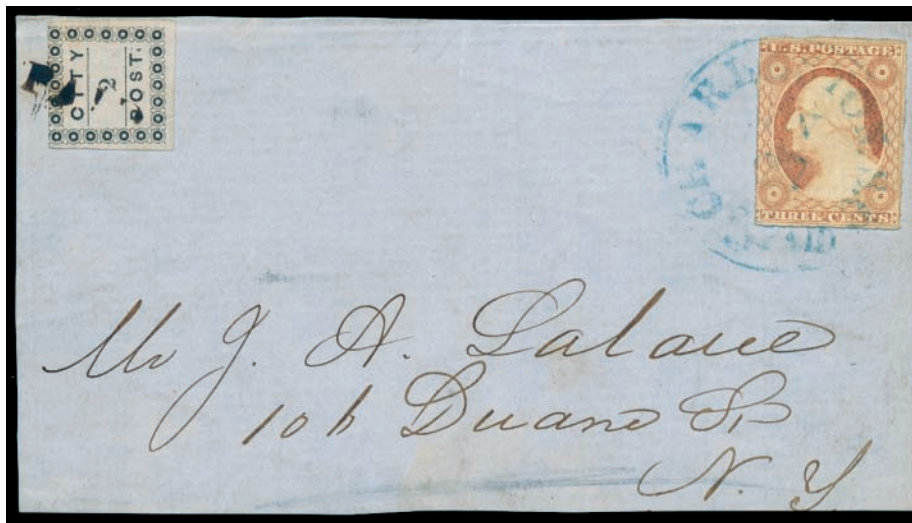 CITY
2
POST.
U.S. POSTAGE
THREE CENTS
PAID
Mr J. A. Lalane
106 Duane St
N. Y